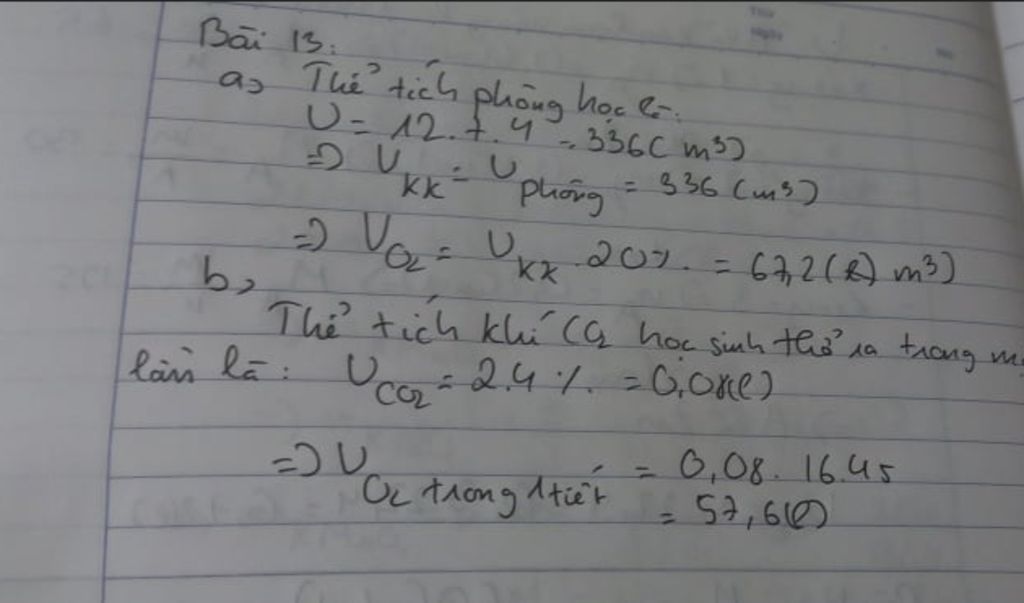 Bài 13:
a, Thể tích phòng học là:
V = 12.7.4 = 336 (m³)
=> V KK = V phòng = 336 (m³)
=> V O2 = V KK . 20% = 67,2 (l) m³)
b,
Thể tích khí CO2 học sinh thở ra trong
lần là: V CO2 = 2.4% = 0,08 (l)
=> V O2 trong 1 tiết = 0,08.16.45
= 57,6 (l)